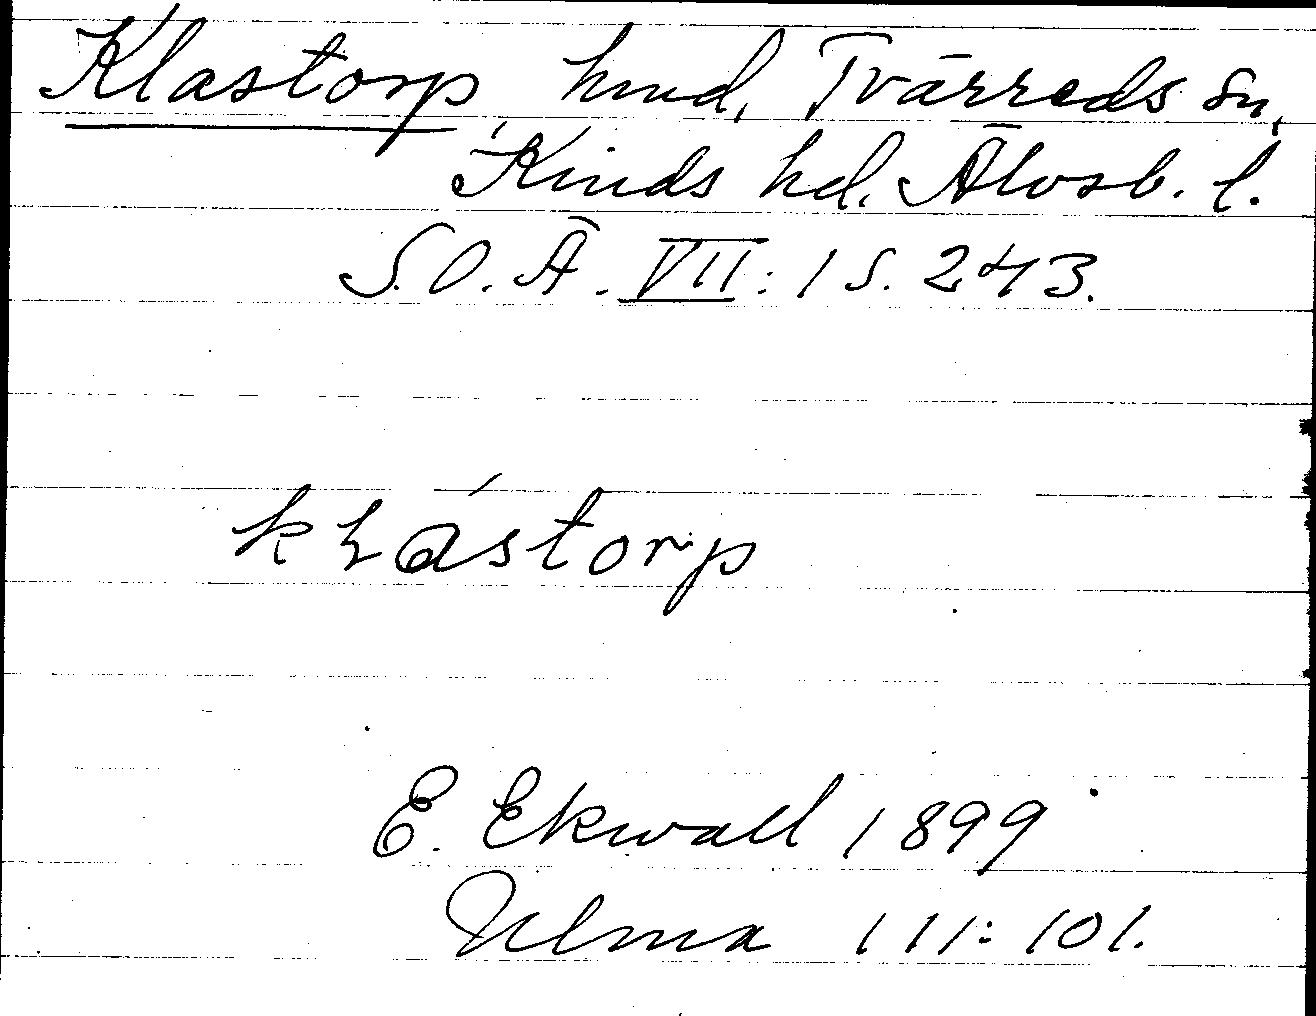 Klastorp, hmd, Tvärreds sn,
Kinds hd. Älvsb. l.
S.O.Ä. VII: 1 S. 243.
kɫástorp
E. Ekwall 1899
Ulma 111:101.